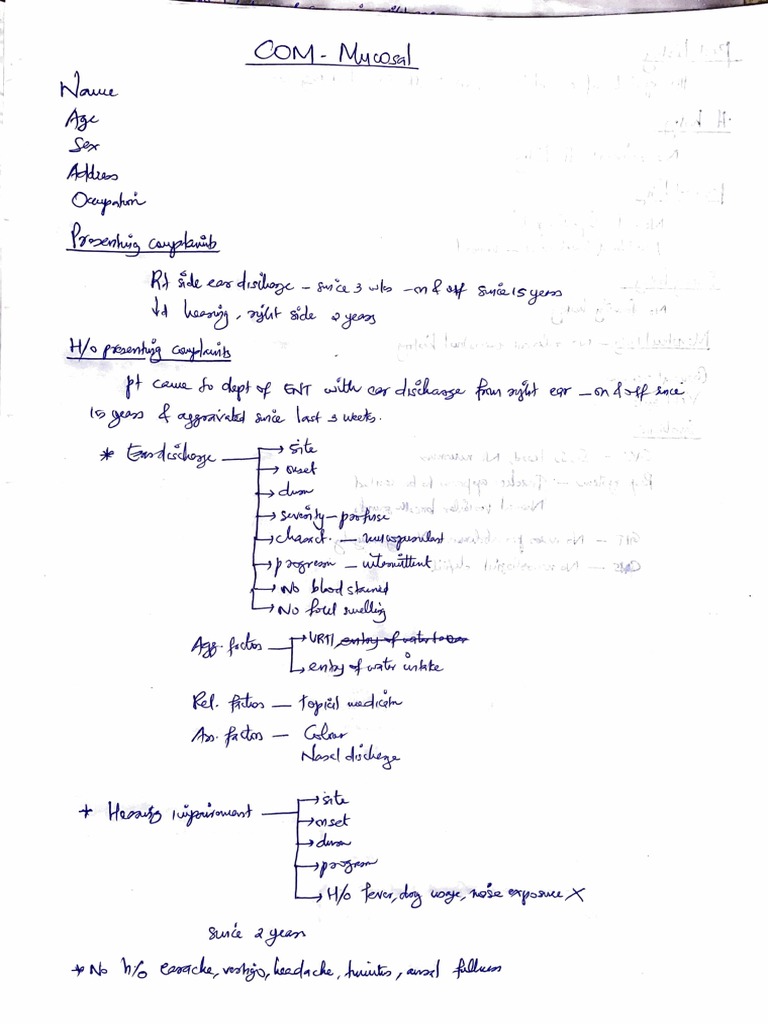 COM - Mucosal
Name
Age
Sex
Address
Occupation
Presenting complaints
Rt side ear discharge - since 3 wks - on & off since 15 years
↓d hearing, right side 2 years
H/o presenting complaints
pt came to dept of ENT with ear discharge from right ear - on & off since
15 years & aggravated since last 3 weeks.
* Ear discharge → site
→ onset
→ durn
→ severity - profuse
→ charact. - mucopurulent
→ progression - intermittent
→ No blood stained
→ No foul smelling
Agg. factors → URTI, entry of water
→ entry of water intake
Rel. factors - topical medicatn
Ass. factors -
Nasal discharge
* Hearing impairment → site
→ onset
→ durn
→ progression
→ H/o fever, drug usage, noise exposure X
since 2 years
* No h/o earache, vertigo, headache, tinnitus, aural fullness